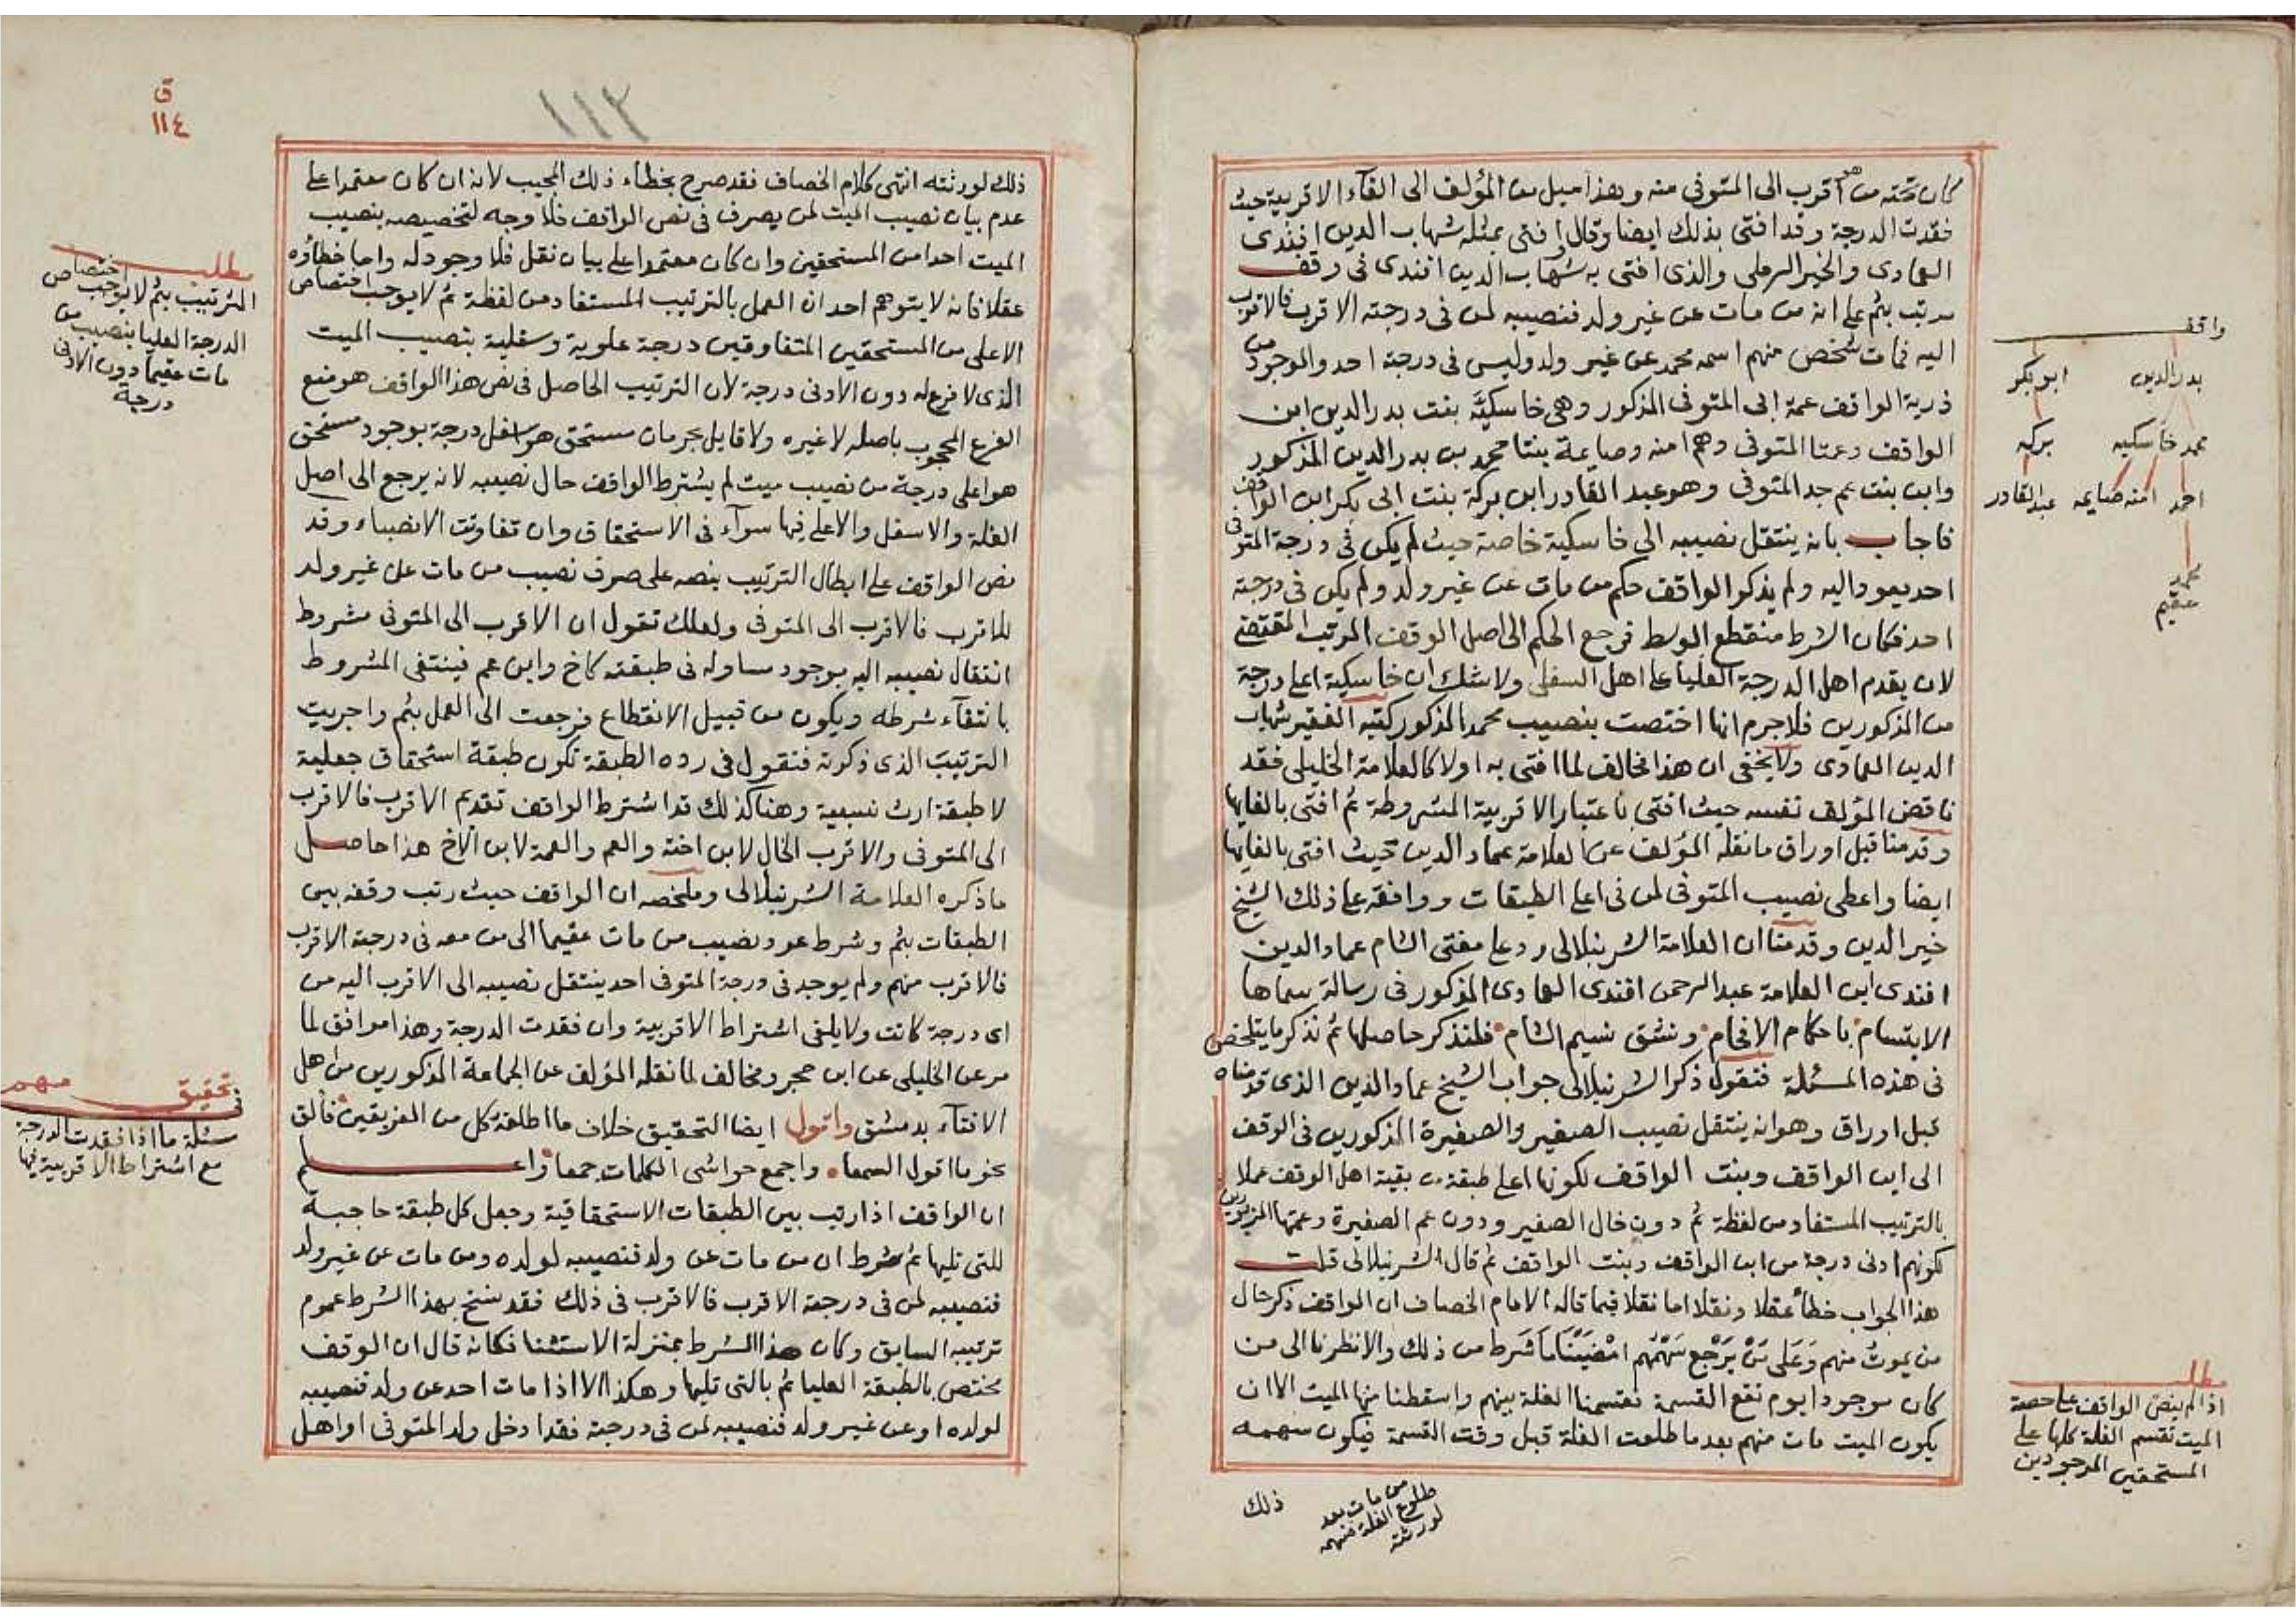 كان ثمته من هو اقرب الى المتوفى منه وهذا ميل من المؤلف الى الغآء الاقربية حيث
فقدت الدرجة وقد افتى بذلك ايضا وقال افتى بمثله شهاب الدين افندى
العمادى والخير الرملى والذى افتى به شهاب الدين افندى فى وقف
مرتب بثم على انه من مات عن غير ولد فنصيبه لمن فى درجته الاقرب فالاقرب
اليه فمات شخص منهم اسمه محمد عن غير ولد وليس فى درجة احد والموجود من
ذرية الواقف عمة ابى المتوفى المذكور وهى خاسكيّة بنت بدر الدين ابن
الواقف وعمتا المتوفى وهم امنه وصايمة بنتا محمد بن بدر الدين المذكور
وابن بنت عم جد المتوفى وهو عبد القادر ابن بركة بنت ابى بكر ابن الواقف
فاجاب بانه ينتقل نصيبه الى خاسكية خاصة حيث لم يكن فى درجة المتوفى
احد يعود اليه ولم يذكر الواقف حكم من مات عن غير ولد ولم يكن فى درجته
احد فكان الشرط منقطع الوسط فرجع الحكم الى اصل الوقف المرتب المقتضى
لان يقدم اهل الدرجة العليا على اهل السفلى ولا شك ان خاسكية اعلى درجة
من المذكورين فلاجرم انها اختصت بنصيب محمد المذكور كتبه الفقير شهاب
الدين العمادى ولا يخفى ان هذا مخالف لما افتى به اولا كالعلامة الخليلى فقد
ناقض المؤلف نفسه حيث افتى باعتبار الاقربية المشروطة ثم افتى بالغايها
وقدمنا قبل اوراق ما نقله المؤلف عن العلامة عماد الدين حيث افتى بالغايها
ايضا واعطى نصيب المتوفى لمن فى اعلى الطبقات ووافقه على ذلك الشيخ
خير الدين وقدمنا ان العلامة الشرنبلالى رد على مفتى الشام عماد الدين
افندى ابن العلامة عبد الرحمن افندى العمادى المذكور فى رسالة سماها
الابتسام باحكام الافحام ونشق نسيم الشام فلنذكر حاصلها ثم نذكر ما يتلخص
فى هذه المسئلة فنقول ذكر الشرنبلالى جواب الشيخ عماد الدين الذى قدمناه
قبل اوراق وهو انه ينتقل نصيب الصغير والصغيرة المذكورين فى الوقف
الى ابن الواقف وبنت الواقف لكونها اعلى طبقة من بقية اهل الوقف عملا
بالترتيب المستفاد من لفظة ثم دون خال الصغير ودون عم الصغيرة وعمتها المزبورين
لكونهم ادنى درجة من ابن الواقف وبنت الواقف ثم قال الشرنبلالى قلت
هذا الجواب خطأ عقلا ونقلا اما نقلا فيما قاله الامام الخصاف ان الواقف ذكر حال
من يموت منهم وَعَلى مَنْ يَرْجع سَهْمُهم امْضَيْنَا مَا شَرَط من ذلك والا نظرنا الى من
كان موجودا يوم تقع القسمة فقسمنا الغلة بينهم واسقطنا منها الميت الا ان
يكون الميت مات منهم بعد ما طلعت الغلة قبل وقت القسمة فيكون سهمه
ذلك
من مات بعد
طلوع الغلة فسهمه
لورثته
واقف
بدر الدين ابو بكر
محمد خاسكيه بركه
احمد امنه صايمه عبد القادر
محمد
عقيم
مطلب
اذا لم ينص الواقف على حصة
الميت تقسم الغلة كلها على
المستحقين الموجودين
١١٢
ق
١١٤
ذلك لورثته انتهى كلام الخصاف فقد صرح بخطاء ذلك المجيب لانه ان كان معتمدا على
عدم بيان نصيب الميت لمن يصرف فى نص الواقف فلا وجه لتخصيصه بنصيب
الميت احدا من المستحقين وان كان معتمدا على بيان نقل فلا وجود له واما خطاؤه
عقلا فانه لا يتوهم احد ان العمل بالترتيب المستفاد من لفظة ثم لا يوجب اختصاص
الاعلى من المستحقين المتفاوتين درجة علوية وسفلية بنصيب الميت
الذى لا فرع له دون الادنى درجة لان الترتيب الحاصل فى نص هذا الواقف هو منع
الفرع المحجوب باصله لا غيره ولا قايل بحرمان مستحق هو اسفل درجة بوجود مستحق
هو اعلى درجة من نصيب ميت لم يشترط الواقف حال نصيبه لانه يرجع الى اصل
الغلة والاسفل والاعلى فيها سوآء فى الاستحقاق وان تفاوتت الانصباء وقد
نص الواقف على ابطال الترتيب بنصه على صرف نصيب من مات عن غير ولد
للاقرب فالاقرب الى المتوفى ولعلك تقول ان الاقرب الى المتوفى مشروط
انتقال نصيبه اليه بوجود مساو له فى طبقته كاخ وابن عم فينتفى المشروط
بانتقآء شرطه ويكون من قبيل الانقطاع فرجعت الى العمل بثم واجريت
الترتيب الذى ذكرته فنقول فى رده الطبقة تكون طبقة استحقاق جعلية
لا طبقة ارث نسبية وهنا كذلك قد اشترط الواقف تقديم الاقرب فالاقرب
الى المتوفى والاقرب الخال لابن اخته والعم والعمة لابن الاخ هذا حاصل
ما ذكره العلامة الشرنبلالى وملخصه ان الواقف حيث رتب وقفه بين
الطبقات بثم وشرط عود نصيب من مات عقيما الى من معه فى درجة الاقرب
فالاقرب منهم ولم يوجد فى درجة المتوفى احد ينتقل نصيبه الى الاقرب اليه من
اى درجة كانت ولا يلغى اشتراط الاقربية وان فقدت الدرجة وهذا موافق لما
مر عن الخليلى عن ابن حجر ومخالف لما نقله المؤلف عن الجماعة المذكورين من اهل
الافتآء بدمشق واقول ايضا التحقيق خلاف ما اطلقه كل من الفريقين فالق
نحو ما اقول السمعا واجمع حواشى الكلمات جمعا واعلم
ان الواقف اذا رتب بين الطبقات الاستحقاقية وجعل كل طبقة حاجبة
للتى تليها ثم شرط ان من مات عن ولد فنصيبه لولده ومن مات عن غير ولد
فنصيبه لمن فى درجة الاقرب فالاقرب فى ذلك فقد نسخ بهذا الشرط عموم
ترتيبه السابق وكان هذا الشرط بمنزلة الاستثنا فكانه قال ان الوقف
يختص بالطبقة العليا ثم بالتى تليها وهكذا الا اذا مات احد عن ولد فنصيبه
لولده او عن غير ولد فنصيبه لمن فى درجة فقد ادخل ولد المتوفى او اهل
مطلب
الترتيب بثم لا يوجب اختصاص
الدرجة العليا بنصيب من
مات عقيما دون الادنى
درجة
تحقيق مهم
فى
مسئلة ما اذا فقدت الدرجة
مع اشتراط الاقربية فيها